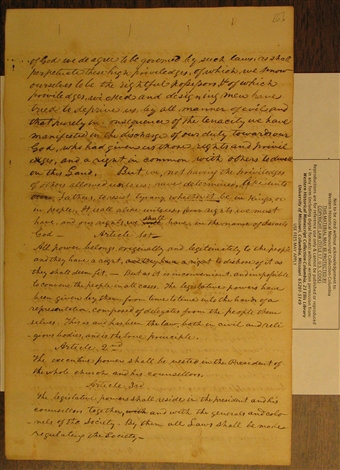 of God we do agree to be governed by such laws, as shall
perpetuate these high priviledges, of which we know
ourselves to be the rightful possessors, & of which
priviledges wicked and designing men have
tried to deprive us by all manner of evil, and
that purely in consequence of the tenacity we have
manifested in the discharge of our duty towards our
God, who had given us those rights and privil
edges, and a right in common with others to dwell
on this Land. But we, not having the priviledges
of others allowed unto us, have determined like unto
our fathers to resist tyranny whether it be in Kings or
in people. It is all alike unto us our rights we must
have, and our rights we shall have, in the name of Israel's
God —
Article 1st—
All power belongs originally and legitimately to the people
and they have a right to dispose of it as
they shall deem fit. — But as it is inconvenient and impossible
to convene the people in all cases. The legislative powers have
been given by them from time to time into the hands of a
representation composed of delegates from the people them
selves. This is and has been the law, both in civil and reli
gious bodies, and is the true principle.
Article 2nd
The executive power shall be vested in the President of
the whole church and his counsellors.
Article 3rd
The legislative powers shall reside in the president and his
counsellors together, and with the generals and colo
nels of the Society. By them all Laws shall be made
regulating the Society—